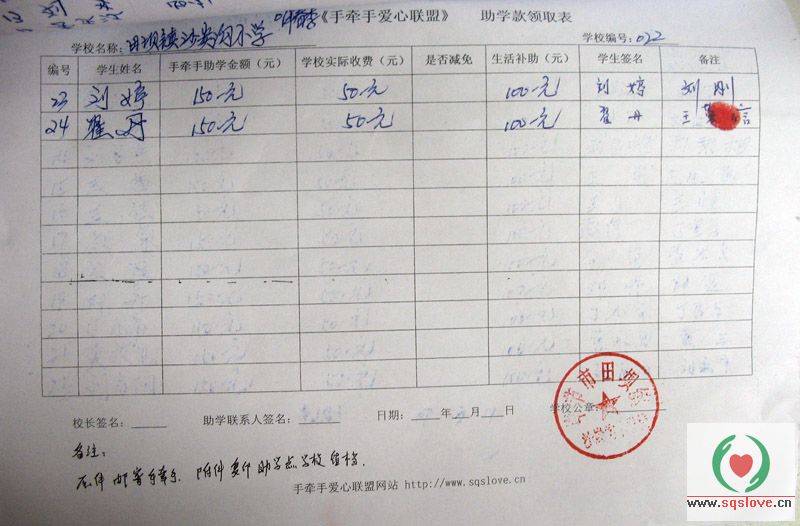 《手牵手爱心联盟》 助学款领取表
学校名称：田坝镇沙尖沟小学 学校编号：022
编号 学生姓名 手牵手助学金额（元） 学校实际收费（元） 是否减免 生活补助（元） 学生签名 备注
23 刘婷 150元 50元 100元 刘婷 刘刚
24 翟丹 150元 50元 100元 翟丹 王
校长签名： 助学联系人签名： 日期： 年 月 日 学校公章：
市田坝
备注：
原件邮寄手牵手，附件复印助学点学校留档．
手牵手爱心联盟网站 http://www.sqslove.cn
www.sqslove.cn